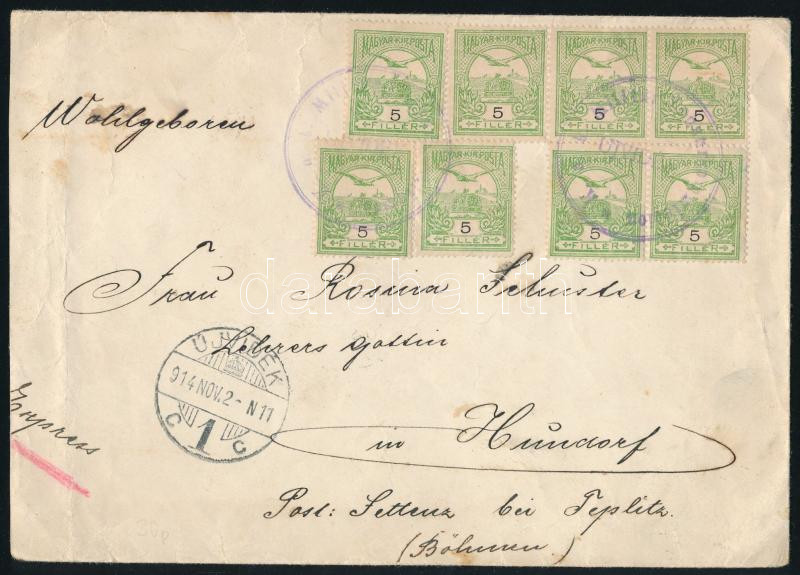 MAGYAR·KIR·POSTA MAGYAR·KIR·POSTA MAGYAR·KIR·POSTA MAGYAR·KIR·POSTA
5 5 5 5
FILLÉR FILLÉR FILLÉR FILLÉR
Wohlgeboren
MAGYAR·KIR·POSTA MAGYAR·KIR·POSTA MAGYAR·KIR·POSTA MAGYAR·KIR·POSTA
5 5 5 5
FILLÉR FILLÉR FILLÉR FILLÉR
Frau Rosina Schuster
darabanth
Lehrers gattin
ÚJVIDÉK
914 NOV. 2 - N 11
C 1 C
Express
in Hundorf
Post: Settenz bei Teplitz.
(Böhmen)